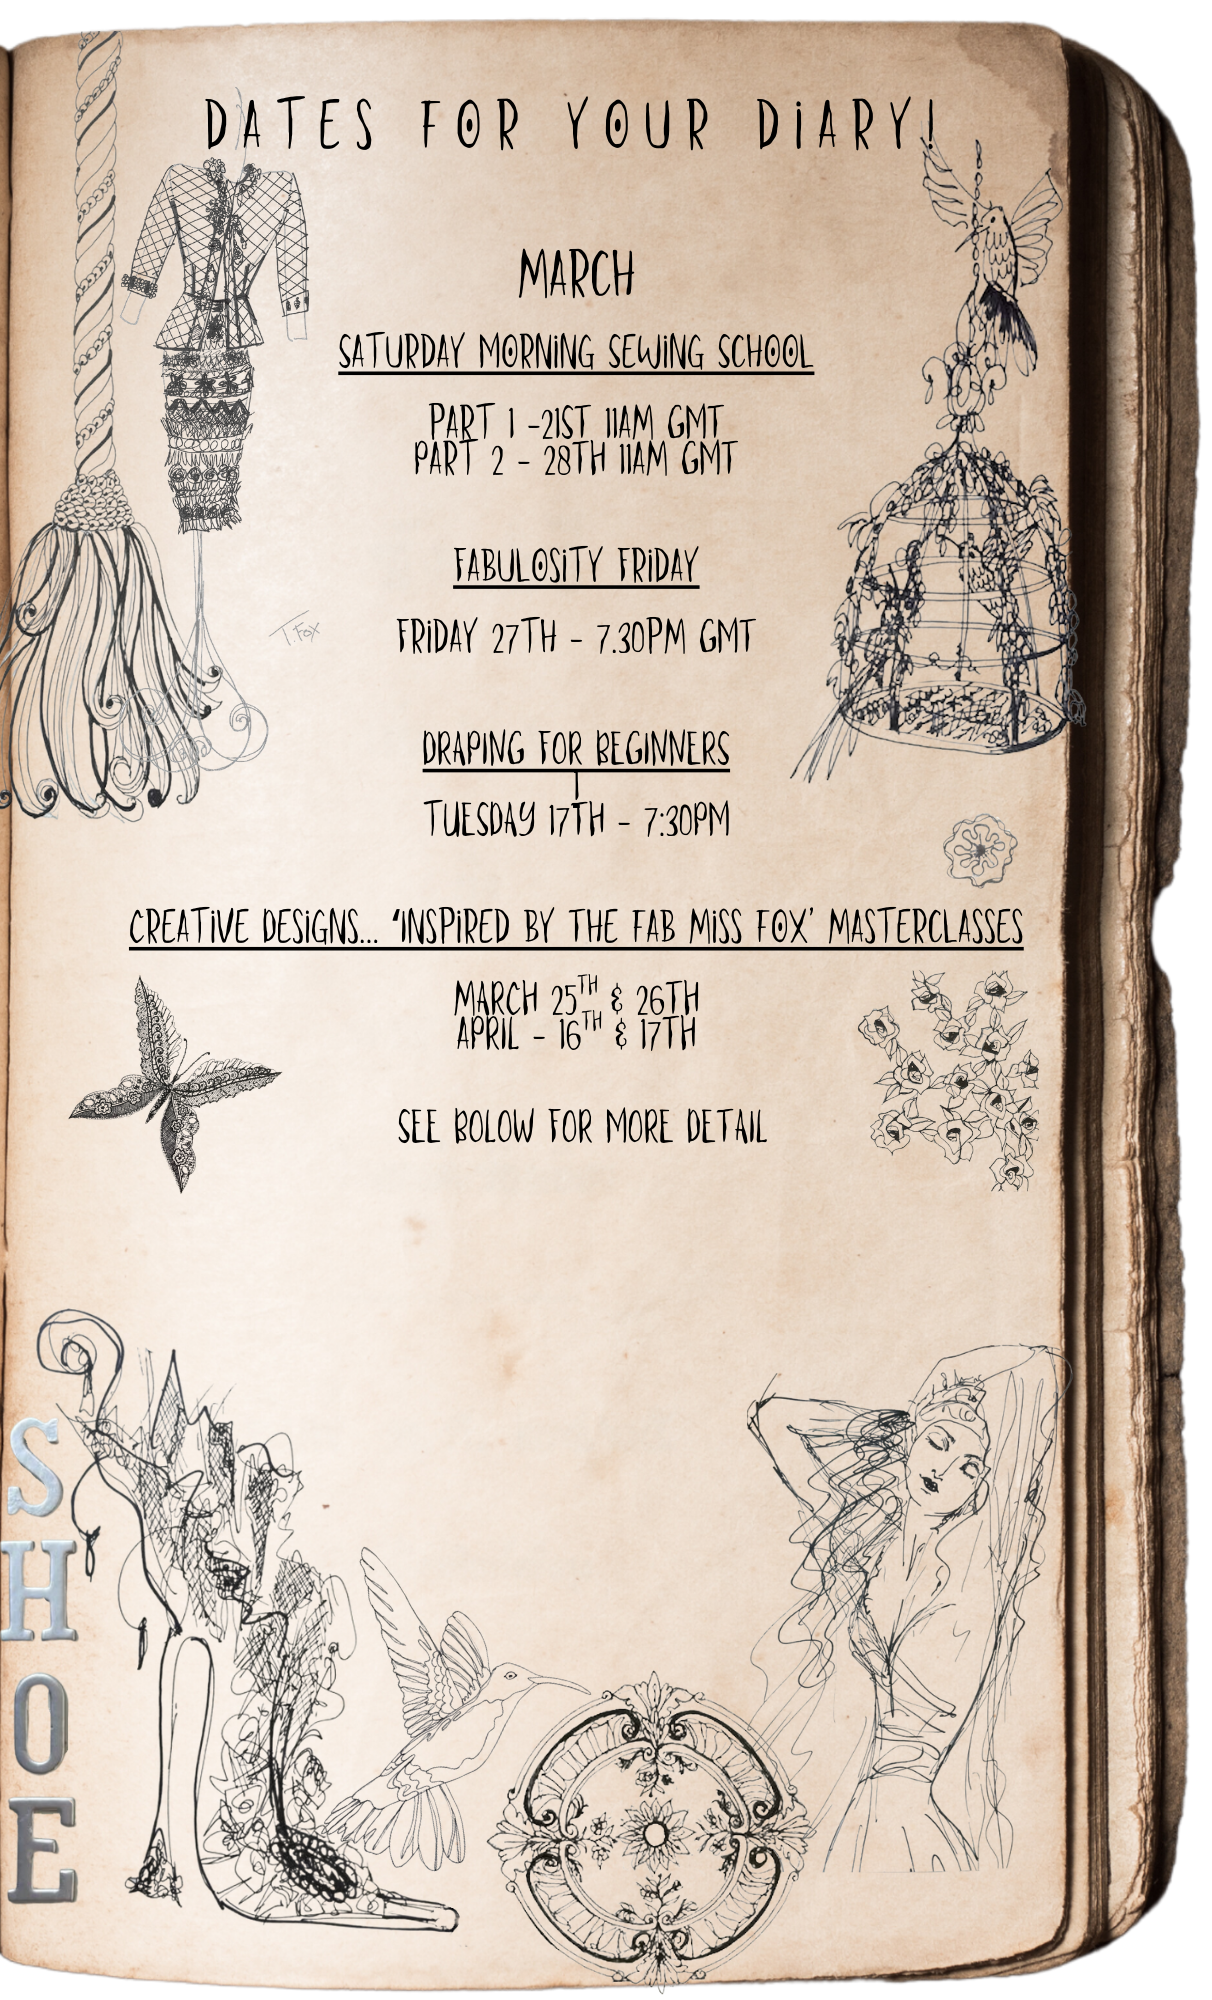 DATES FOR YOUR DIARY!
MARCH
SATURDAY MORNING SEWING SCHOOL
PART 1 -21ST 11AM GMT
PART 2 - 28TH 11AM GMT
FABULOSITY FRIDAY
FRIDAY 27TH - 7.30PM GMT
T Fox
DRAPING FOR BEGINNERS
TUESDAY 17TH - 7:30PM
CREATIVE DESIGNS... 'INSPIRED BY THE FAB MISS FOX' MASTERCLASSES
MARCH 25TH & 26TH
APRIL - 16TH & 17TH
SEE BOLOW FOR MORE DETAIL
SHOE